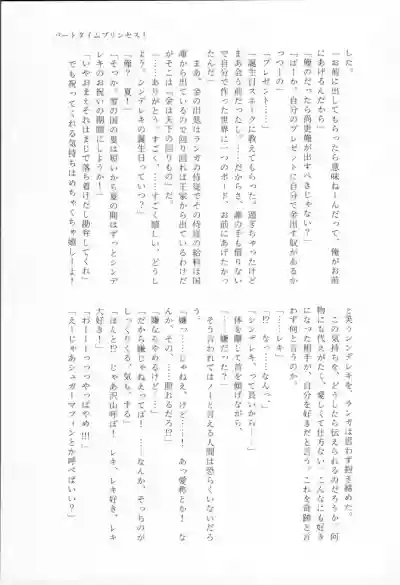 パートタイムプリンセス！
した。
「お前に出してもらったら意味ねーんだって、俺がお前
にあげるんだから」
「俺のだったら尚更俺が出すべきじゃない？」
「ばーか、自分のプレゼントに自分で金出す奴があるか
っつーの」
「プレゼント……」
「誕生日スネークに教えてもらった。過ぎちゃったけど
まあ会う前だったし。……だからさ、誰の手も借りない
で自分で作った世界に一つのボード、お前にあげたかっ
たんだ」
まあ、金の出処はランガの侍従でその侍従の給料は国
庫から出ているので回り回れば王家から出ているわけだ
がそこは『金は天下の回りもの』だ。
「……ありがとう。すごく、……すごく嬉しい、どうし
よう。シンデレキの誕生日っていつ？」
「俺？　夏！」
「そっか。雪の国の夏は短いから夏の間はずっとシンデ
レキのお祝いの期間にしようか！」
「いやおまえそれはまじで落ち着けだし勘弁してくれ」
でも祝ってくれる気持ちはめちゃくちゃ嬉しーよ！
と笑うシンデレキを、ランガは思わず抱き締めた。
この気持ちを、どうしたら伝えられるのだろうか。何
物にも代えがたい、愛しくて仕方ない、こんなにも好き
になった相手が、自分を好きだと言う。これを奇跡と言
わず何と言うのか。
「……レキ」
「！？　なっ……なんっ」
「シンデレキ、って長いから……」
体を離して、首を傾げながら。
「……嫌だった？」
そう言われてはノーと言える人間は恐らくいないだろ
う。
「嫌っ……じゃねえ、けど……！　あっ愛称とか！　な
んか、その、……照れるだろ！？」
「嫌ならやめるけど……」
「だから嫌じゃねえってば！　……なんか、そっちのが
しっくりくる、気も、する」
「ほんと！？　じゃあ沢山呼ぼ！　レキ、レキ好き、レキ
大好き！」
「わーーーっっっっやっぱやめ！！！」
「えーじゃあシュガーマフィンとか呼べばいい？」